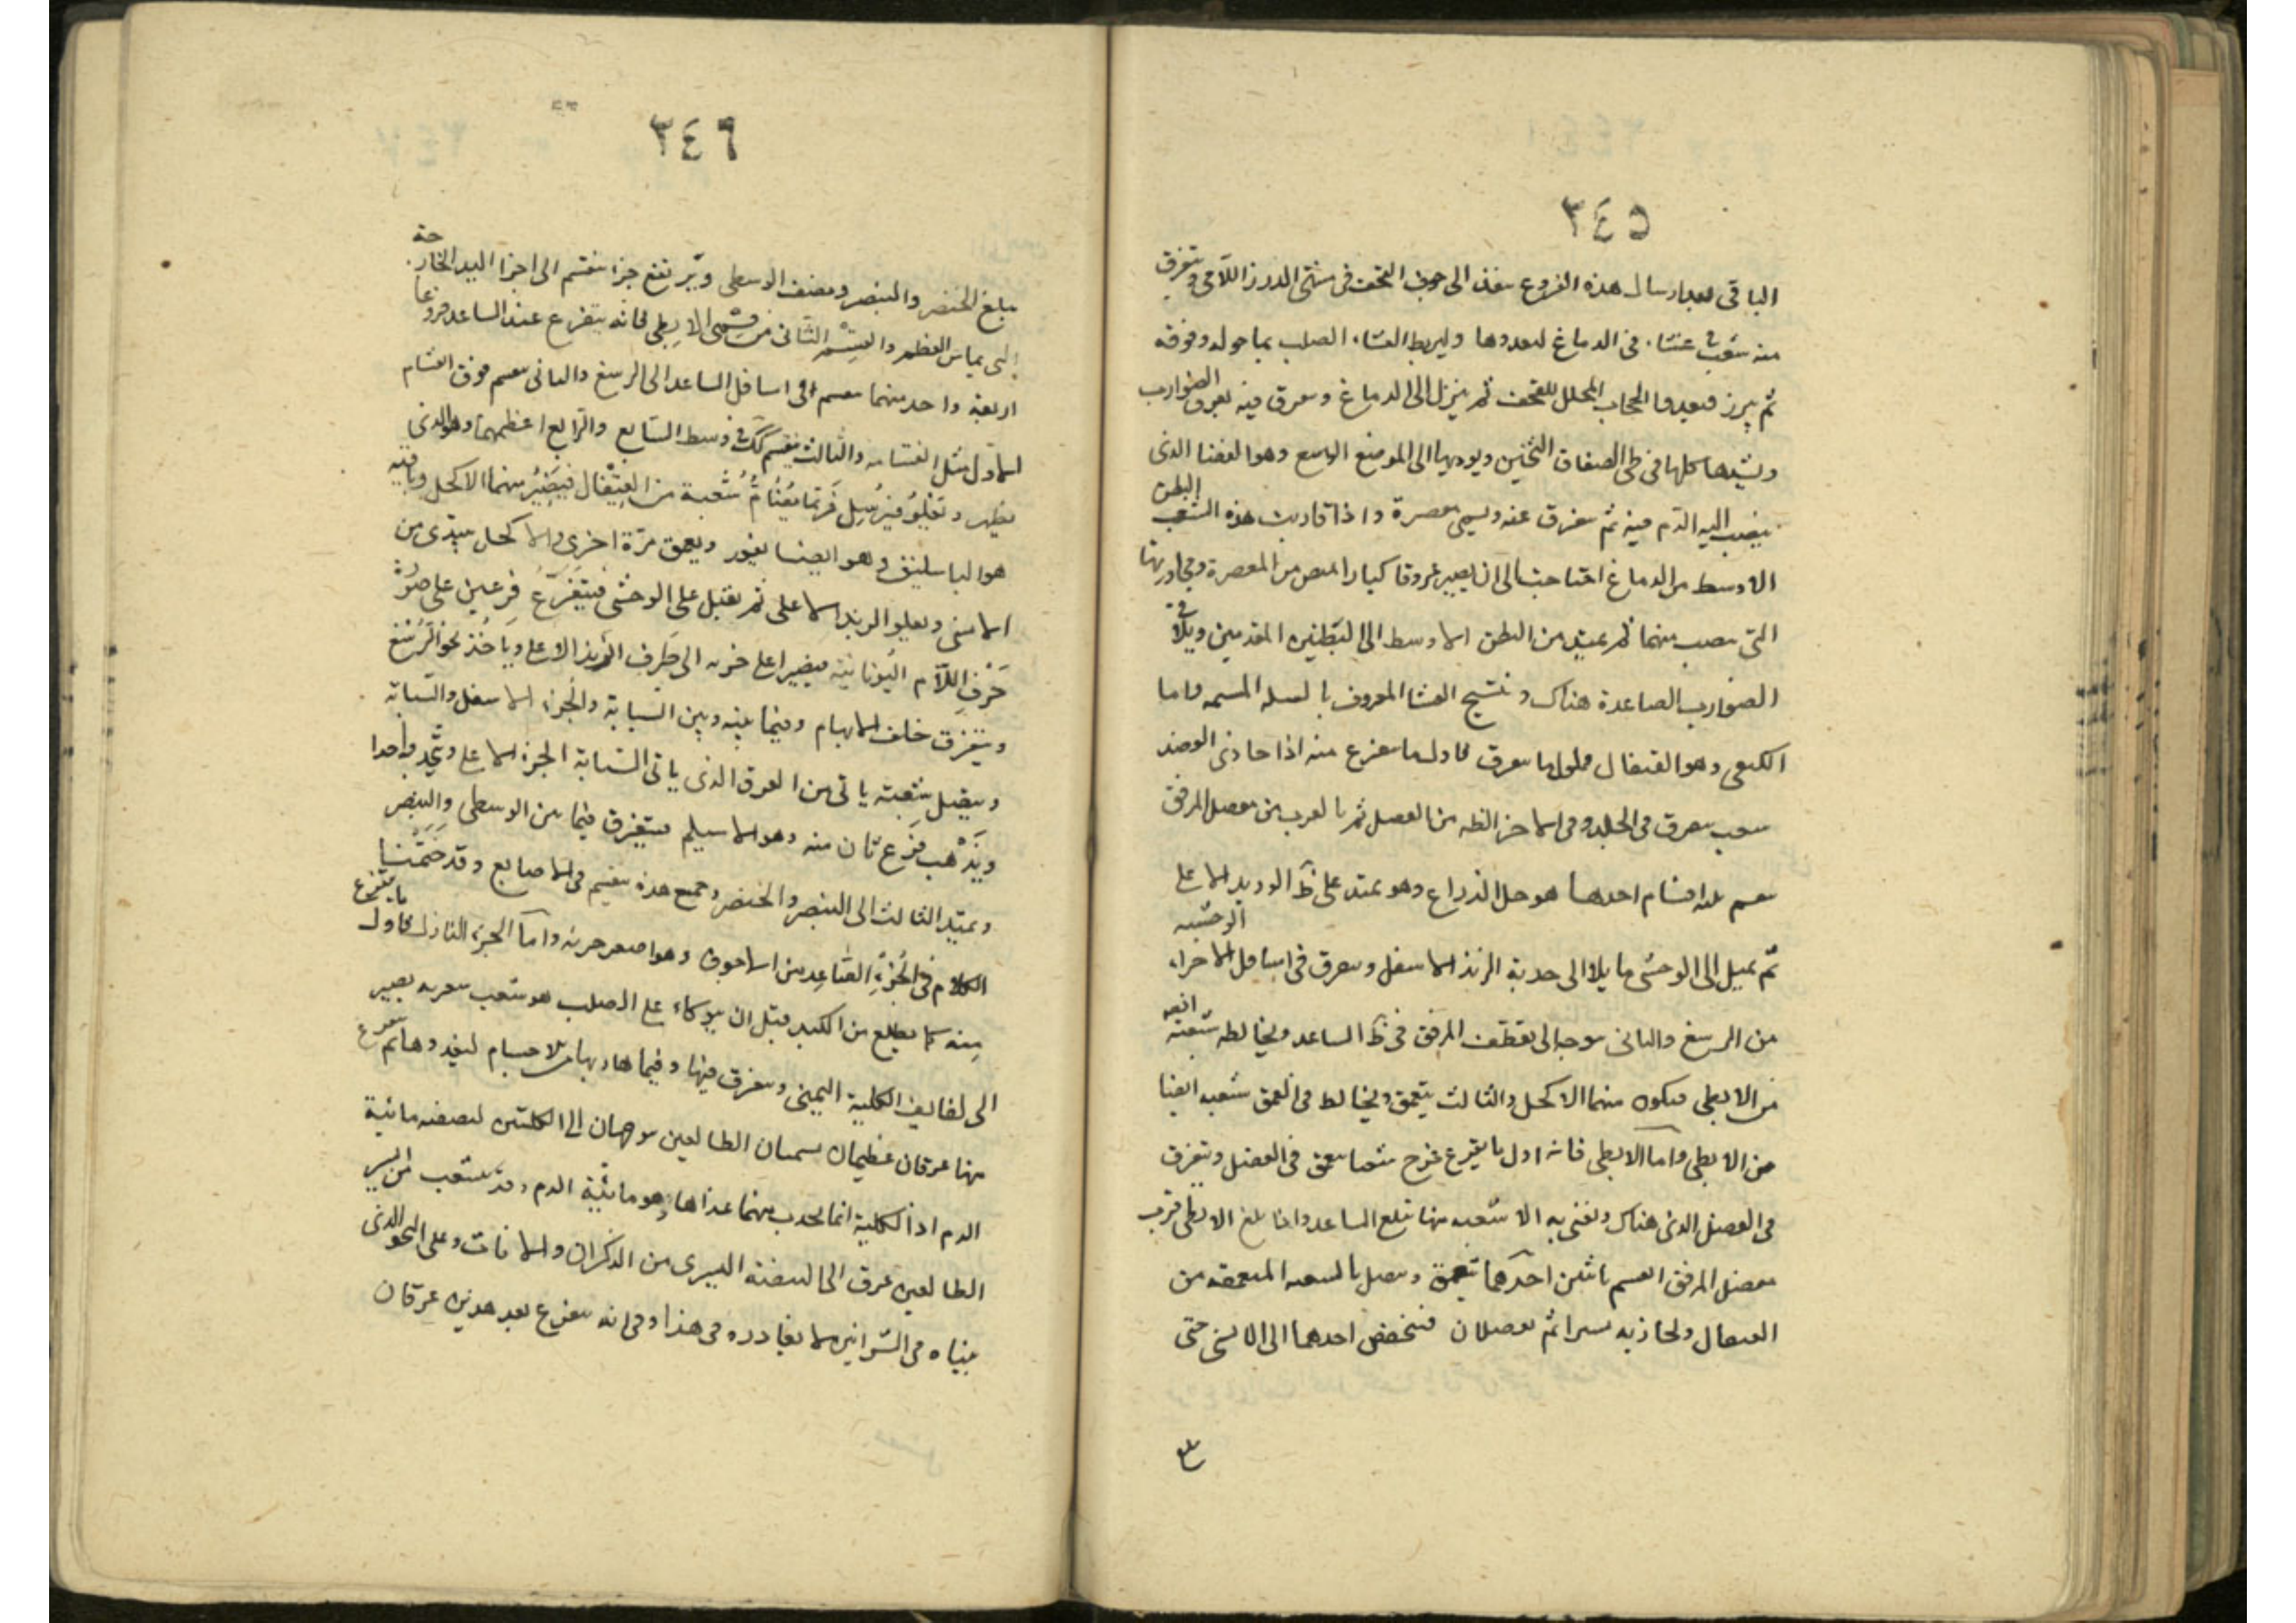 ٣٤٥
الباقى بعد ارسال هذه الفروع ينفذ الى جوف القحف فى منتهى الدرز اللامى ويتفرق
منه شعب فى غشاء فى الدماغ ليغدوها وليربط الغشاء الصلب بما حوله وفوقه
ثم يبرز فيغدوا الحجاب المجلل للقحف ثم ينزل الى الدماغ ويتفرق فيه تفرق الضوارب
ويشدها كلها فى طى الصفاق الثخين ويوديها الى الموضع الواسع وهو الفضا الذى
ينصب اليه الدم فيه ثم يتفرق عنه ويسمى معصرة واذا قاربت هذه الشعب البطن
الاوسط من الدماغ احتاجت الى ان يصير عروقا كبارا تمتص من المعصرة ومجاريها
التى تنصب منها ثم يمتد من البطن الاوسط الى البطنين المقدمين ويلاقى
الضوارب الصاعدة هناك وتنتسج الغشا المعروف بالشبكة المشيمية واما
الكتفى وهو القيفال فاول ما يتفرع منه اذا حاذى العضد
شعب يتفرق فى الجلد وفى الاجزا الظاهرة من العضل ثم بالقرب من مفصل المرفق
ينقسم ثلثه اقسام احدها هو حبل الذراع وهو يمتد على ظ الوريد الاعلى
ثم يميل الى الوحشى مايلا الى حدبة الزند الاسفل ويتفرق فى اسافل الاجزاء الوحشيه
من الرسغ والثانى يتوجه الى تقطف المرفق فى ظ الساعد ويخالطه شعبة
من الابطى فيكون منهما الاكحل والثالث يتعمق ويخالط فى العمق شعبه ايضا
من الابطى واما الابطى فانه اول ما يتفرع يفرع شعبا يتعمق فى العضل ويتفرق
فى العضل الذى هناك ويفنى به الا شعبه منها تبلغ الساعد واذا بلغ الابطى قرب
مفصل المرفق انقسم باثنين احدهما يتعمق ويتصل بالشعبه المتعمقه من
القيفال ويحاذيه يسيرا ثم ينفصلان فينخفض احدهما الى الانسى حتى
٣٤٦
يبلغ الخنصر والبنصر ونصف الوسطى ويرتفع جزا ينقسم الى اجزا اليد الخارجة
التى يماس العظم والقسم الثانى من قسمى الابطى فانه يتفرع عند الساعد فروعا
اربعة واحد منهما ينقسم فى اسافل الساعد الى الرسغ والثانى ينقسم فوق انقسام
الاول مثل انقسامه والثالث ينقسم كك فى وسط الساعد والرابع اعظمهما وهو الذى
يظهر ويعلو فيرسل فرعا يضام شعبة من القيفال فيصير منهما الاكحل وباقيه
هو الباسليق وهو ايضا يغور ويعمق مرة اخرى والاكحل يبتدى من
الانسى ويعلو الزند الاعلى ثم يقبل على الوحشى فيتفرع فرعين على صورة
حرف اللام اليونانية فيصير اعلى جزيه الى طرف الزند الاعلى وياخذ نحو الرسغ
ويتفرق خلف الابهام وفيما بينه وبين السبابة والجزء الاسفل والسبابة
ويتفرق شعبته ياتى من العرق الذى ياتى السبابة الجزء الاعلى ويتحد واحدا
ويذهب فرع ثان منه وهو الاسيلم فيتفرق فيما بين الوسطى والبنصر
ويمتد الثالث الى البنصر والخنصر وجميع هذه ينقسم فى الاصابع وقد ختمنا
الكلام فى الجزء الصاعد من الاجوف وهو اصغر جزئه واما الجزء النازل فاول ما يتفرع
منه كما يطلع من الكبد قبل ان يتوكاء على الصلب هو شعب شعريه يصير
الى لفايف الكلية اليمنى ويتفرق فيها وفيما هاربها من الاجسام ليغدوها ثم يتفرع
منها عرقان عظيمان يسميان الطالعين يتوجهان الى الكلتين لتصفيه مائية
الدم اذ الكلية انما يجذب منهما غذاها وهو مائية الدم وقد يتشعب من ايسر
الطالعين عرق الى البيضة اليسرى من الذكران والاناث وعلى النحو الذى
بيناه فى الشرايين لا يغادره فى هذا وفى انه يتفرع بعد هذين عرقان